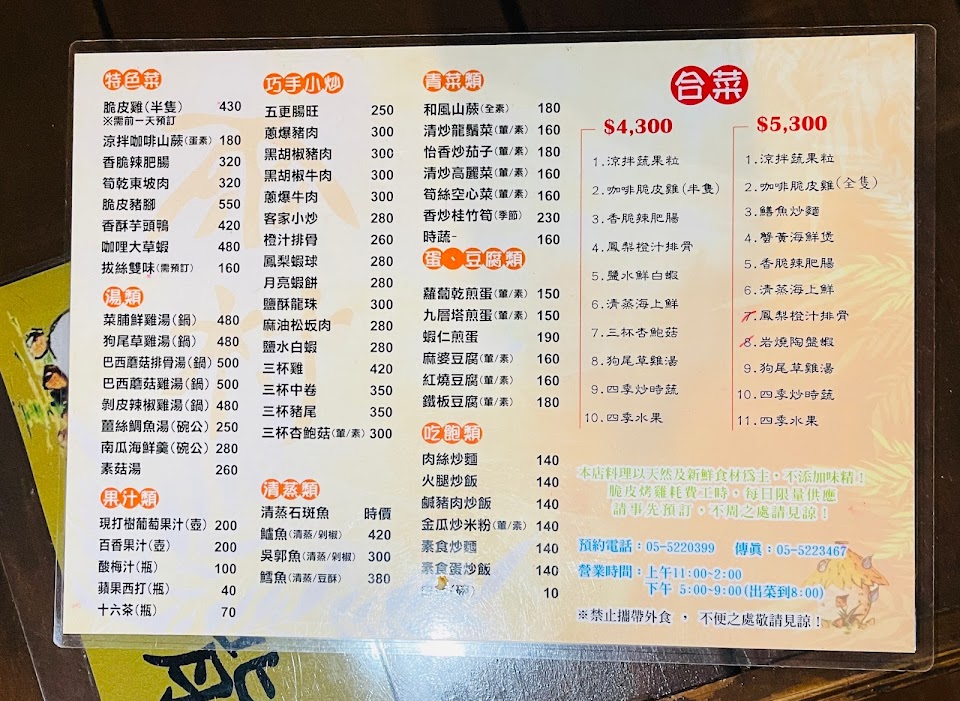 特色菜
脆皮雞(半隻) 430
※需前一天預訂
涼拌咖啡山蕨(蛋素) 180
香脆辣肥腸 320
筍乾東坡肉 320
脆皮豬腳 550
香酥芋頭鴨 420
咖哩大草蝦 480
拔絲雙味(需預訂) 160
湯類
菜脯鮮雞湯(鍋) 480
狗尾草雞湯(鍋) 480
巴西蘑菇排骨湯(鍋) 500
巴西蘑菇雞湯(鍋) 500
剝皮辣椒雞湯(鍋) 480
薑絲鯛魚湯(碗公) 250
南瓜海鮮羹(碗公) 280
素菇湯 260
果汁類
現打樹葡萄果汁(壺) 200
百香果汁(壺) 200
酸梅汁(瓶) 100
蘋果西打(瓶) 40
十六茶(瓶) 70
巧手小炒
五更腸旺 250
蔥爆豬肉 300
黑胡椒豬肉 300
黑胡椒牛肉 300
蔥爆牛肉 300
客家小炒 280
橙汁排骨 260
鳳梨蝦球 280
月亮蝦餅 280
鹽酥龍珠 300
麻油松坂肉 280
鹽水白蝦 280
三杯雞 420
三杯中卷 350
三杯豬尾 350
三杯杏鮑菇(葷/素) 300
清蒸類
清蒸石斑魚 時價
鱸魚(清蒸/剁椒) 420
吳郭魚(清蒸/剁椒) 300
鱈魚(清蒸/豆酥) 380
青菜類
和風山蕨(全素) 180
清炒龍鬚菜(葷/素) 160
怡香炒茄子(葷/素) 180
清炒高麗菜(葷/素) 160
筍絲空心菜(葷/素) 160
香炒桂竹筍(季節) 230
時蔬- 160
蛋、豆腐類
蘿蔔乾煎蛋(葷/素) 150
九層塔煎蛋(葷/素) 150
蝦仁煎蛋 190
麻婆豆腐(葷/素) 160
紅燒豆腐(葷/素) 160
鐵板豆腐(葷/素) 180
吃飽類
肉絲炒麵 140
火腿炒飯 140
鹹豬肉炒飯 140
金瓜炒米粉(葷/素) 140
素食炒麵 140
素食蛋炒飯 140
10
合菜
$4,300
1.涼拌蔬果粒
2.咖啡脆皮雞(半隻)
3.香脆辣肥腸
4.鳳梨橙汁排骨
5.鹽水鮮白蝦
6.清蒸海上鮮
7.三杯杏鮑菇
8.狗尾草雞湯
9.四季炒時蔬
10.四季水果
$5,300
1.涼拌蔬果粒
2.咖啡脆皮雞(全隻)
3.鱔魚炒麵
4.蟹黃海鮮煲
5.香脆辣肥腸
6.清蒸海上鮮
7.鳳梨橙汁排骨
8.岩燒陶盤蝦
9.狗尾草雞湯
10.四季炒時蔬
11.四季水果
本店料理以天然及新鮮食材為主,不添加味精!
脆皮烤雞耗費工時,每日限量供應
請事先預訂,不周之處請見諒!
預約電話:05-5220399 傳真:05-5223467
營業時間:上午11:00~2:00
下午 5:00~9:00(出菜到8:00)
※禁止攜帶外食 , 不便之處敬請見諒!